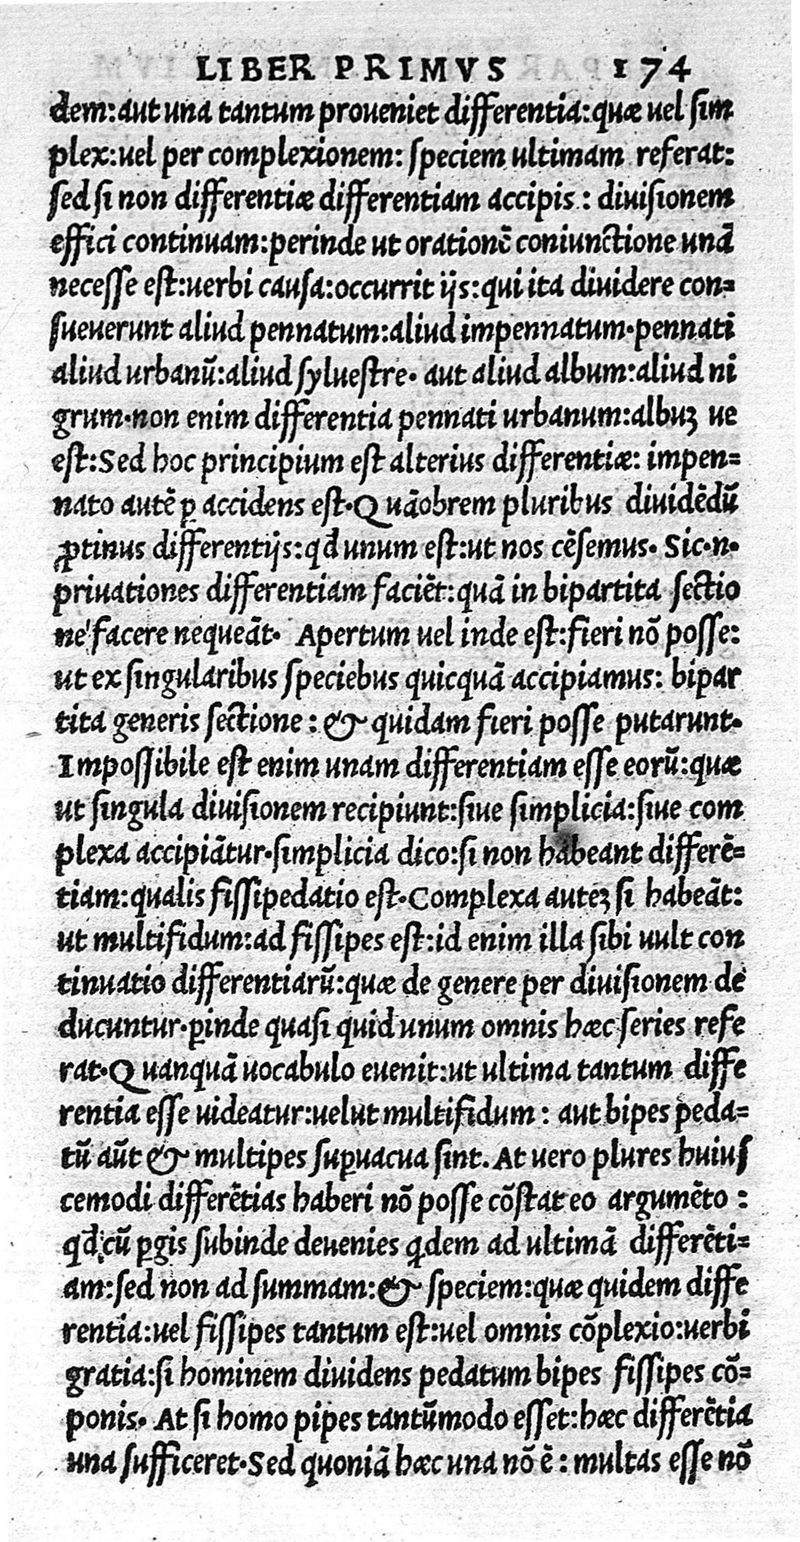 LIBER PRIMVS 174
dem:aut una tantum proueniet differentia:quæ uel sim
plex:uel per complexionem: speciem ultimam referat:
sed si non differentiæ differentiam accipis : diuisionem
effici continuam:perinde ut orationē coniunctione unā
necesse est:uerbi causa:occurrit ijs:qui ita diuidere con=
sueuerunt aliud pennatum:aliud impennatum·pennati
aliud urbanū:aliud syluestre· aut aliud album:aliud ni
grum·non enim differentia pennati urbanum:albuꝫ ue
est:Sed hoc principium est alterius differentiæ: impen=
nato autē ꝑ accidens est·Quāobrem pluribus diuidēdū
ꝓtinus differentijs:qđ unum est:ut nos cēsemus· Sic·n·
priuationes differentiam faciēt:quā in bipartita sectio
ne facere nequeāt· Apertum uel inde est:fieri nō posse:
ut ex singularibus speciebus quicquā accipiamus: bipar
tita generis sectione : & quidam fieri posse putarunt·
Impossibile est enim unam differentiam esse eorū:quæ
ut singula diuisionem recipiunt:siue simplicia:siue com
plexa accipiātur·simplicia dico:si non habeant differē=
tiam:qualis fissipedatio est·Complexa auteꝫ si habeāt:
ut multifidum:ad fissipes est:id enim illa sibi uult con
tinuatio differentiarū:quæ de genere per diuisionem de
ducuntur·ꝑinde quasi quid unum omnis hæc series refe
rat·Quanquā uocabulo euenit:ut ultima tantum diffe
rentia esse uideatur:uelut multifidum : aut bipes peda=
tū aūt & multipes suꝑuacua sint. At uero plures huius
cemodi differētias haberi nō posse cōstat eo argumēto :
qđ cū ꝑgis subinde deuenies qdem ad ultimā differēti=
am:sed non ad summam:& speciem:quæ quidem diffe
rentia:uel fissipes tantum est:uel omnis cōplexio:uerbi
gratia:si hominem diuidens pedatum bipes fissipes cō=
ponis· At si homo pipes tantūmodo esset:hæc differētia
una sufficeret·Sed quoniā hæc una nō ē : multas esse nō